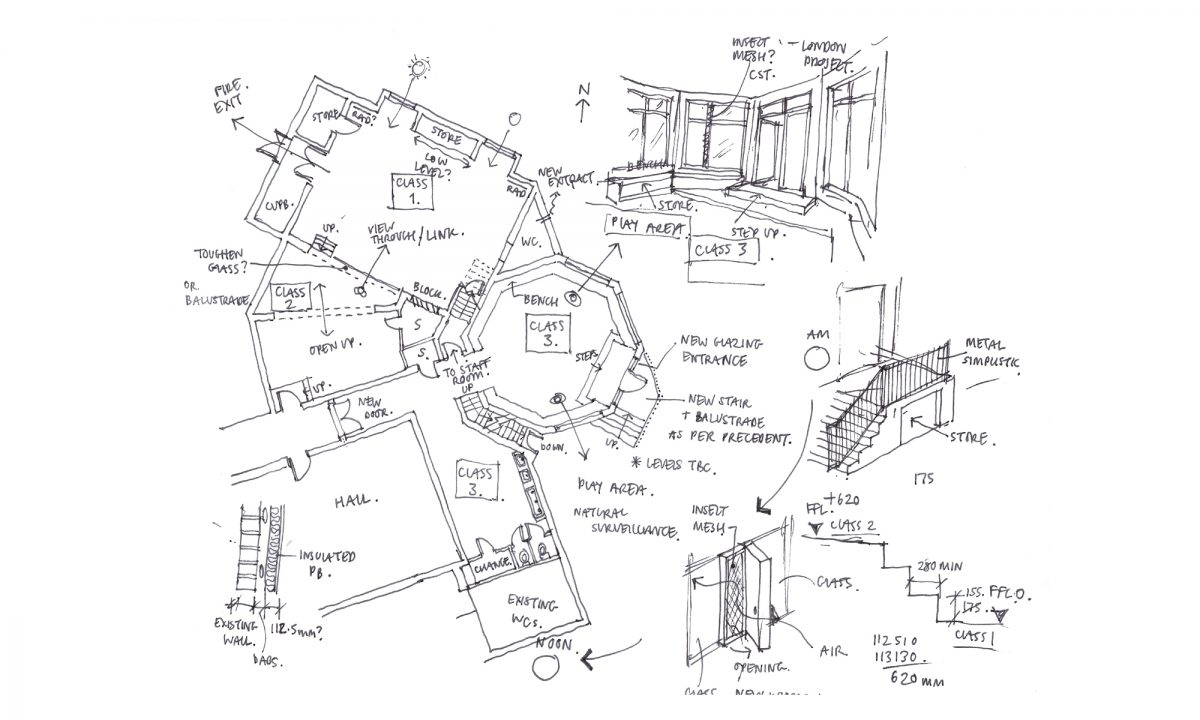 FIRE.
EXIT
STORE
RAD?
STORE
LOW
LEVEL?
CLASS
1.
RAD
CUPB.
UP.
VIEW
THROUGH/LINK.
TOUGHEN
GLASS?
OR
BALUSTRADE
CLASS
2
OPEN UP.
BLOCK.
S
S.
UP.
NEW
DOOR.
TO STAFF
ROOM.
UP
WC.
NEW
EXTRACT.
BENCH
CLASS
3.
STEPS
UP.
DOWN.
NEW GLAZING
ENTRANCE
NEW STAIR
+ BALUSTRADE
AS PER PRECEDENT.
* LEVELS TBC.
PLAY AREA.
NATURAL
SURVEILLANCE.
PLAY AREA.
CLASS
3.
HALL.
CHANGE.
EXISTING
WCs.
NOON.
INSULATED
PB.
EXISTING
WALL.
112.5mm?
DABS.
N
INSECT
MESH?
CST.
LONDON
PROJECT.
BENCH
STORE.
STEP UP.
CLASS 3
AM
METAL
SIMPLISTIC
STORE.
175
INSECT
MESH
GLASS.
AIR
OPENING.
GLASS
FFL.
+620
CLASS 2
280 MIN
155.
175.
FFL 0.
CLASS 1
112510
113130.
620 mm